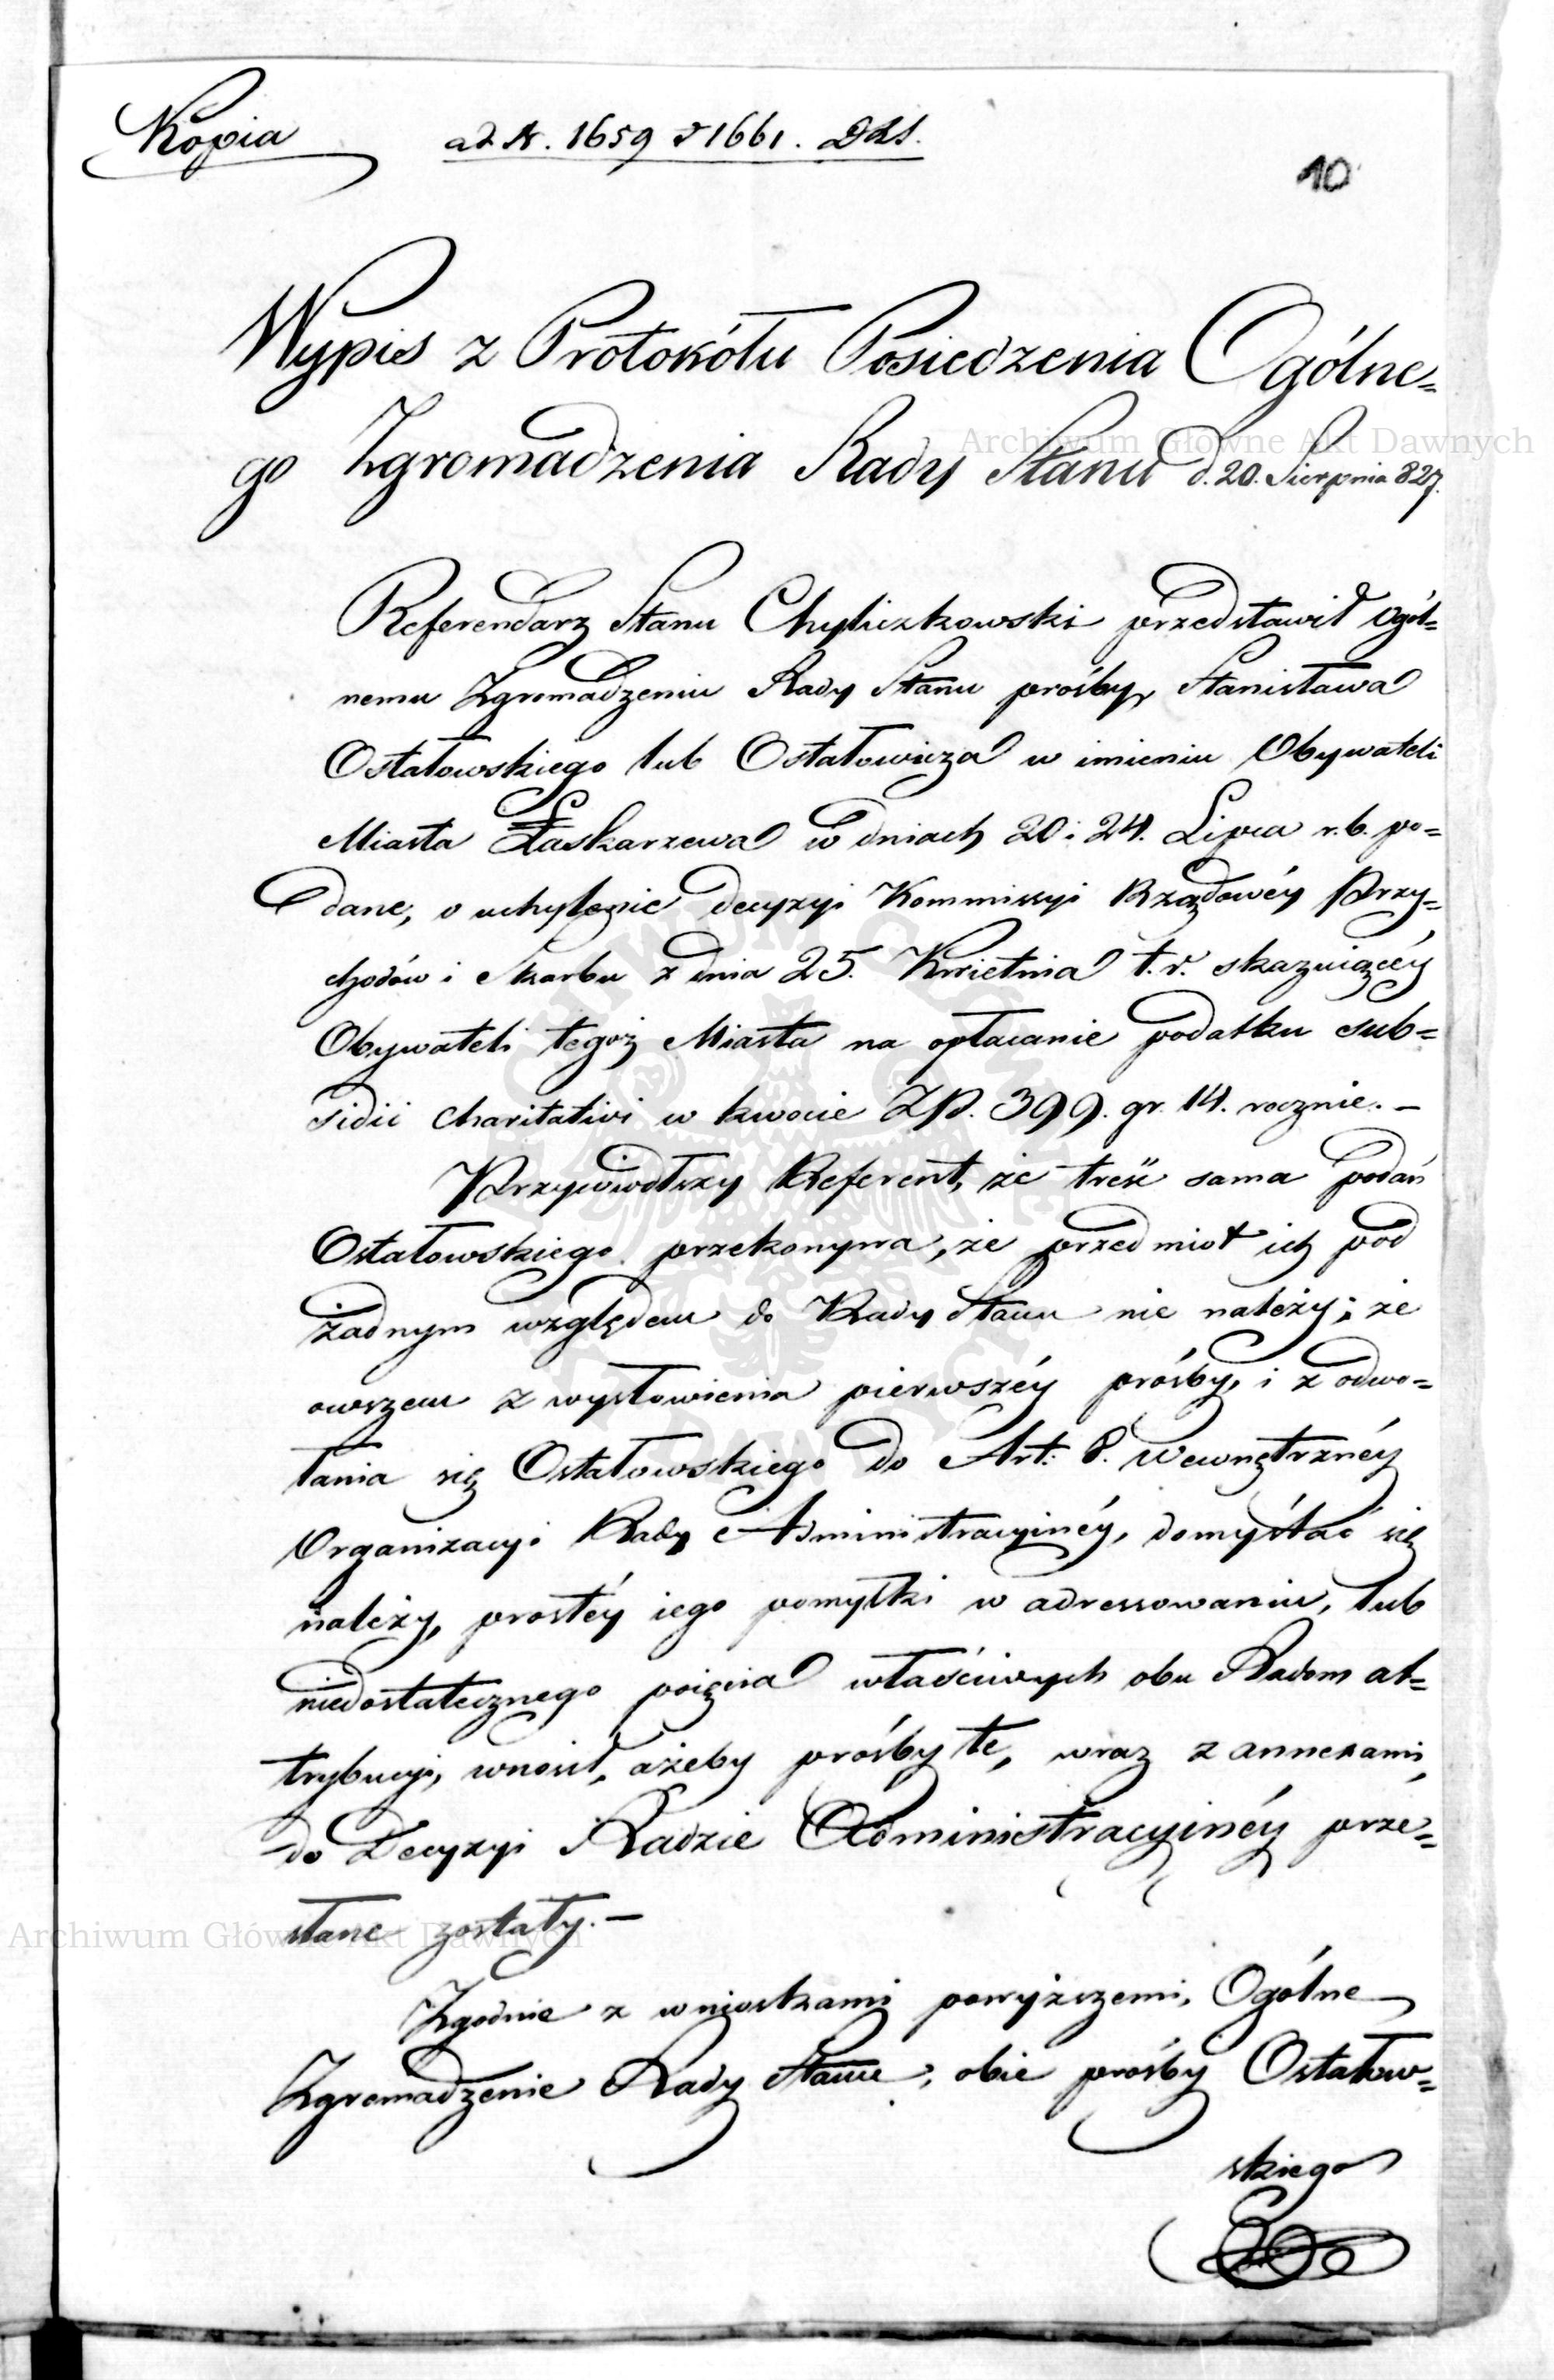 Kopia
ad N. 1659 & 1661. DRS.
10
Wypis z Protokółu Posiedzenia Ogólne=
go Zgromadzenia Rady Stanu d. 20. Sierpnia 827.
Referendarz Stanu Chyliczkowski przedstawił Ogól=
nemu Zgromadzeniu Rady Stanu prośby, Stanisława
Ostałowskiego lub Ostałowicza w imieniu Obywateli
Miasta Łaskarzewa w dniach 20 i 24. Lipca r. b. po=
dane, o uchylenie decyzyi Kommissyi Rządowéy Przy=
chodów i Skarbu z dnia 25. Kwietnia t. r. skazuiącéy
Obywateli tegoż Miasta na opłacanie podatku sub=
sidii charitativi w kwocie Zp. 399. gr. 14. rocznie. —
Przywiódłszy Referent, że treść sama podań
Ostałowskiego przekonywa, że przedmiot ich pod
żadnym względem do Rady Stanu nie należy; że
owszem z wysłowienia pierwszéy prośby, i z odwo=
łania się Ostałowskiego do Art: 8. Wewnętrznéy
Organizacyi Rady Administracyinéy, domyślać się
należy, prostéy iego pomyłki w adressowaniu, lub
niedostatecznego poięcia właściwych obu Radom at=
trybucyi, wnosił, ażeby prośby te, wraz z annexami,
do Decyzyi Radzie Administracyinéy prze=
słane zostały. —
Zgodnie z wnioskami powyższemi, Ogólne
Zgromadzenie Rady Stanu, obie prośby Ostałow=
skiego
Archiwum Główne Akt Dawnych
Archiwum Główne Akt Dawnych
ARCHIWUM GŁÓWNE AKT DAWNYCH